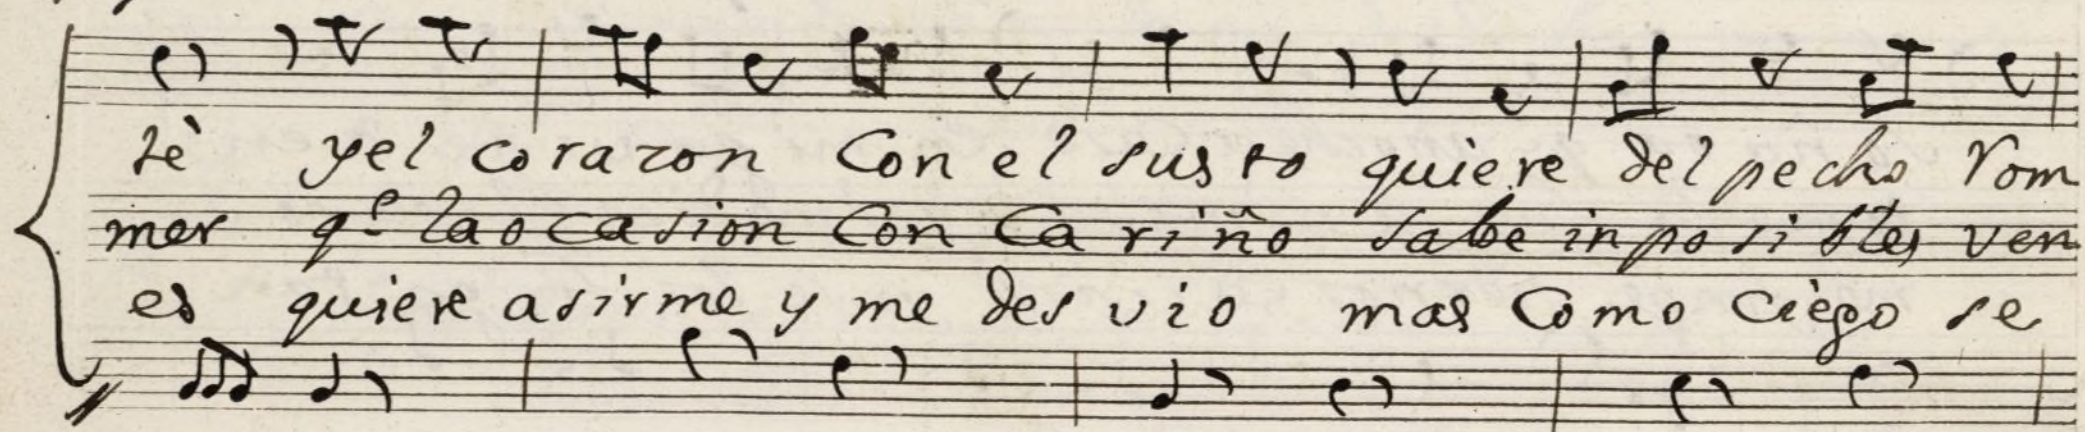 tè yel corazon Con el susto quiere del pecho Rom
mer q.e la ocasion Con Cariño sabe inposibles ven
es quiere asirme y me des vio mas Como Ciègo se